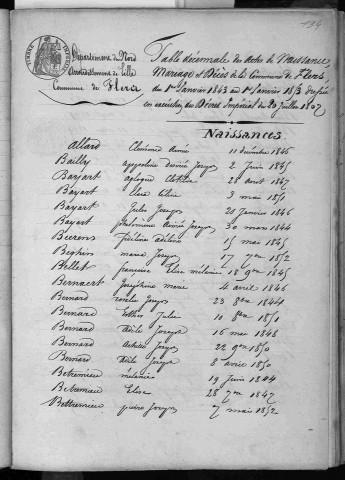 134
Département du Nord
Arrondissement de Lille
Commune de Flers
Table décennale des Actes de Naissance,
Mariage et Décès de la Commune de Flers,
du 1er Janvier 1843 au 1er Janvier 1853 dressée
en exécution du Décret Impérial du 20 Juillet 1807
Naissances
Allard Clémence Aimée 11 décembre 1846
Bailly Désirée Joseph 2 Juin 1845
Bayart Clotilde 28 avril 1847
Bayart Elise Céline 3 mai 1851
Bayart Jules Joseph 20 Janvier 1846
Bayart philomène Aimée Joseph 30 mars 1844
Beerens 15 mai 1845
Beghin maria Joseph 17 7bre 1852
Bellet françoise Elise mélanie 18 9bre 1845
Bernaert Joséphine marie 4 avril 1846
Bernard rosalie Joseph 23 8bre 1844
Bernard Esther Julie 10 8bre 1851
Bernard Adèle Joseph 16 mai 1848
Bernard Achille Joseph 22 9bre 1850
Bernard Adèle Joseph 6 avril 1850
Betremieux mélanie 19 Juin 1844
Betremieux Elise 28 7bre 1847
Bettremieux pierre Joseph 7 mai 1852